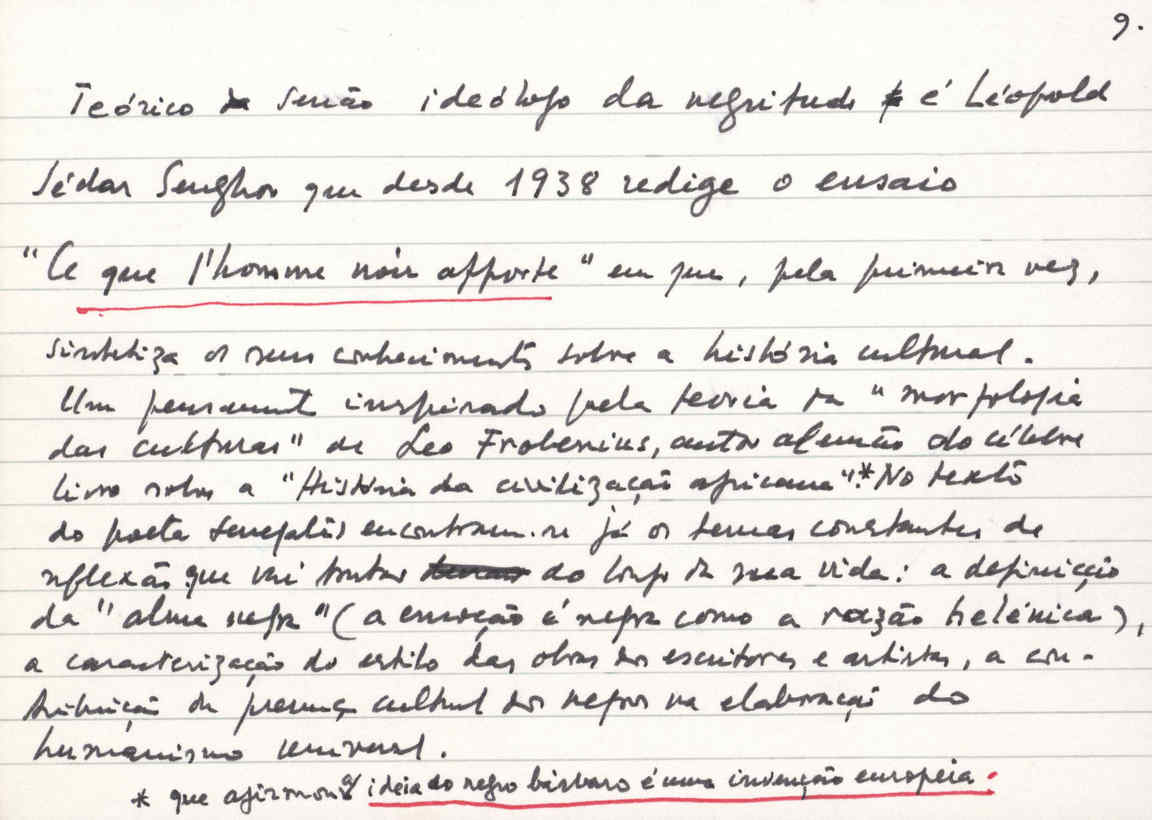 9.
Teórico senão ideólogo da negritude é Léopold
Sédar Senghor que desde 1938 redige o ensaio
"Ce que l'homme noir apporte" em que, pela primeira vez,
sintetiza os seus conhecimentos sobre a história cultural.
Um pensamento inspirado pela teoria da "morfologia
das culturas" de Leo Frobenius, autor alemão do célebre
livro sobre a "História da civilização africana".* No texto
do poeta senegalês encontram-se já os temas constantes de
reflexão que vai tratar ao longo da sua vida: a definição
da "alma negra" (a emoção é negra como a razão helénica),
a caracterização do estilo das obras dos escritores e artistas, a con-
tribuição da presença cultural dos negros na elaboração do
humanismo universal.
* que afirmou q/ ideia do negro bárbaro é uma invenção europeia.